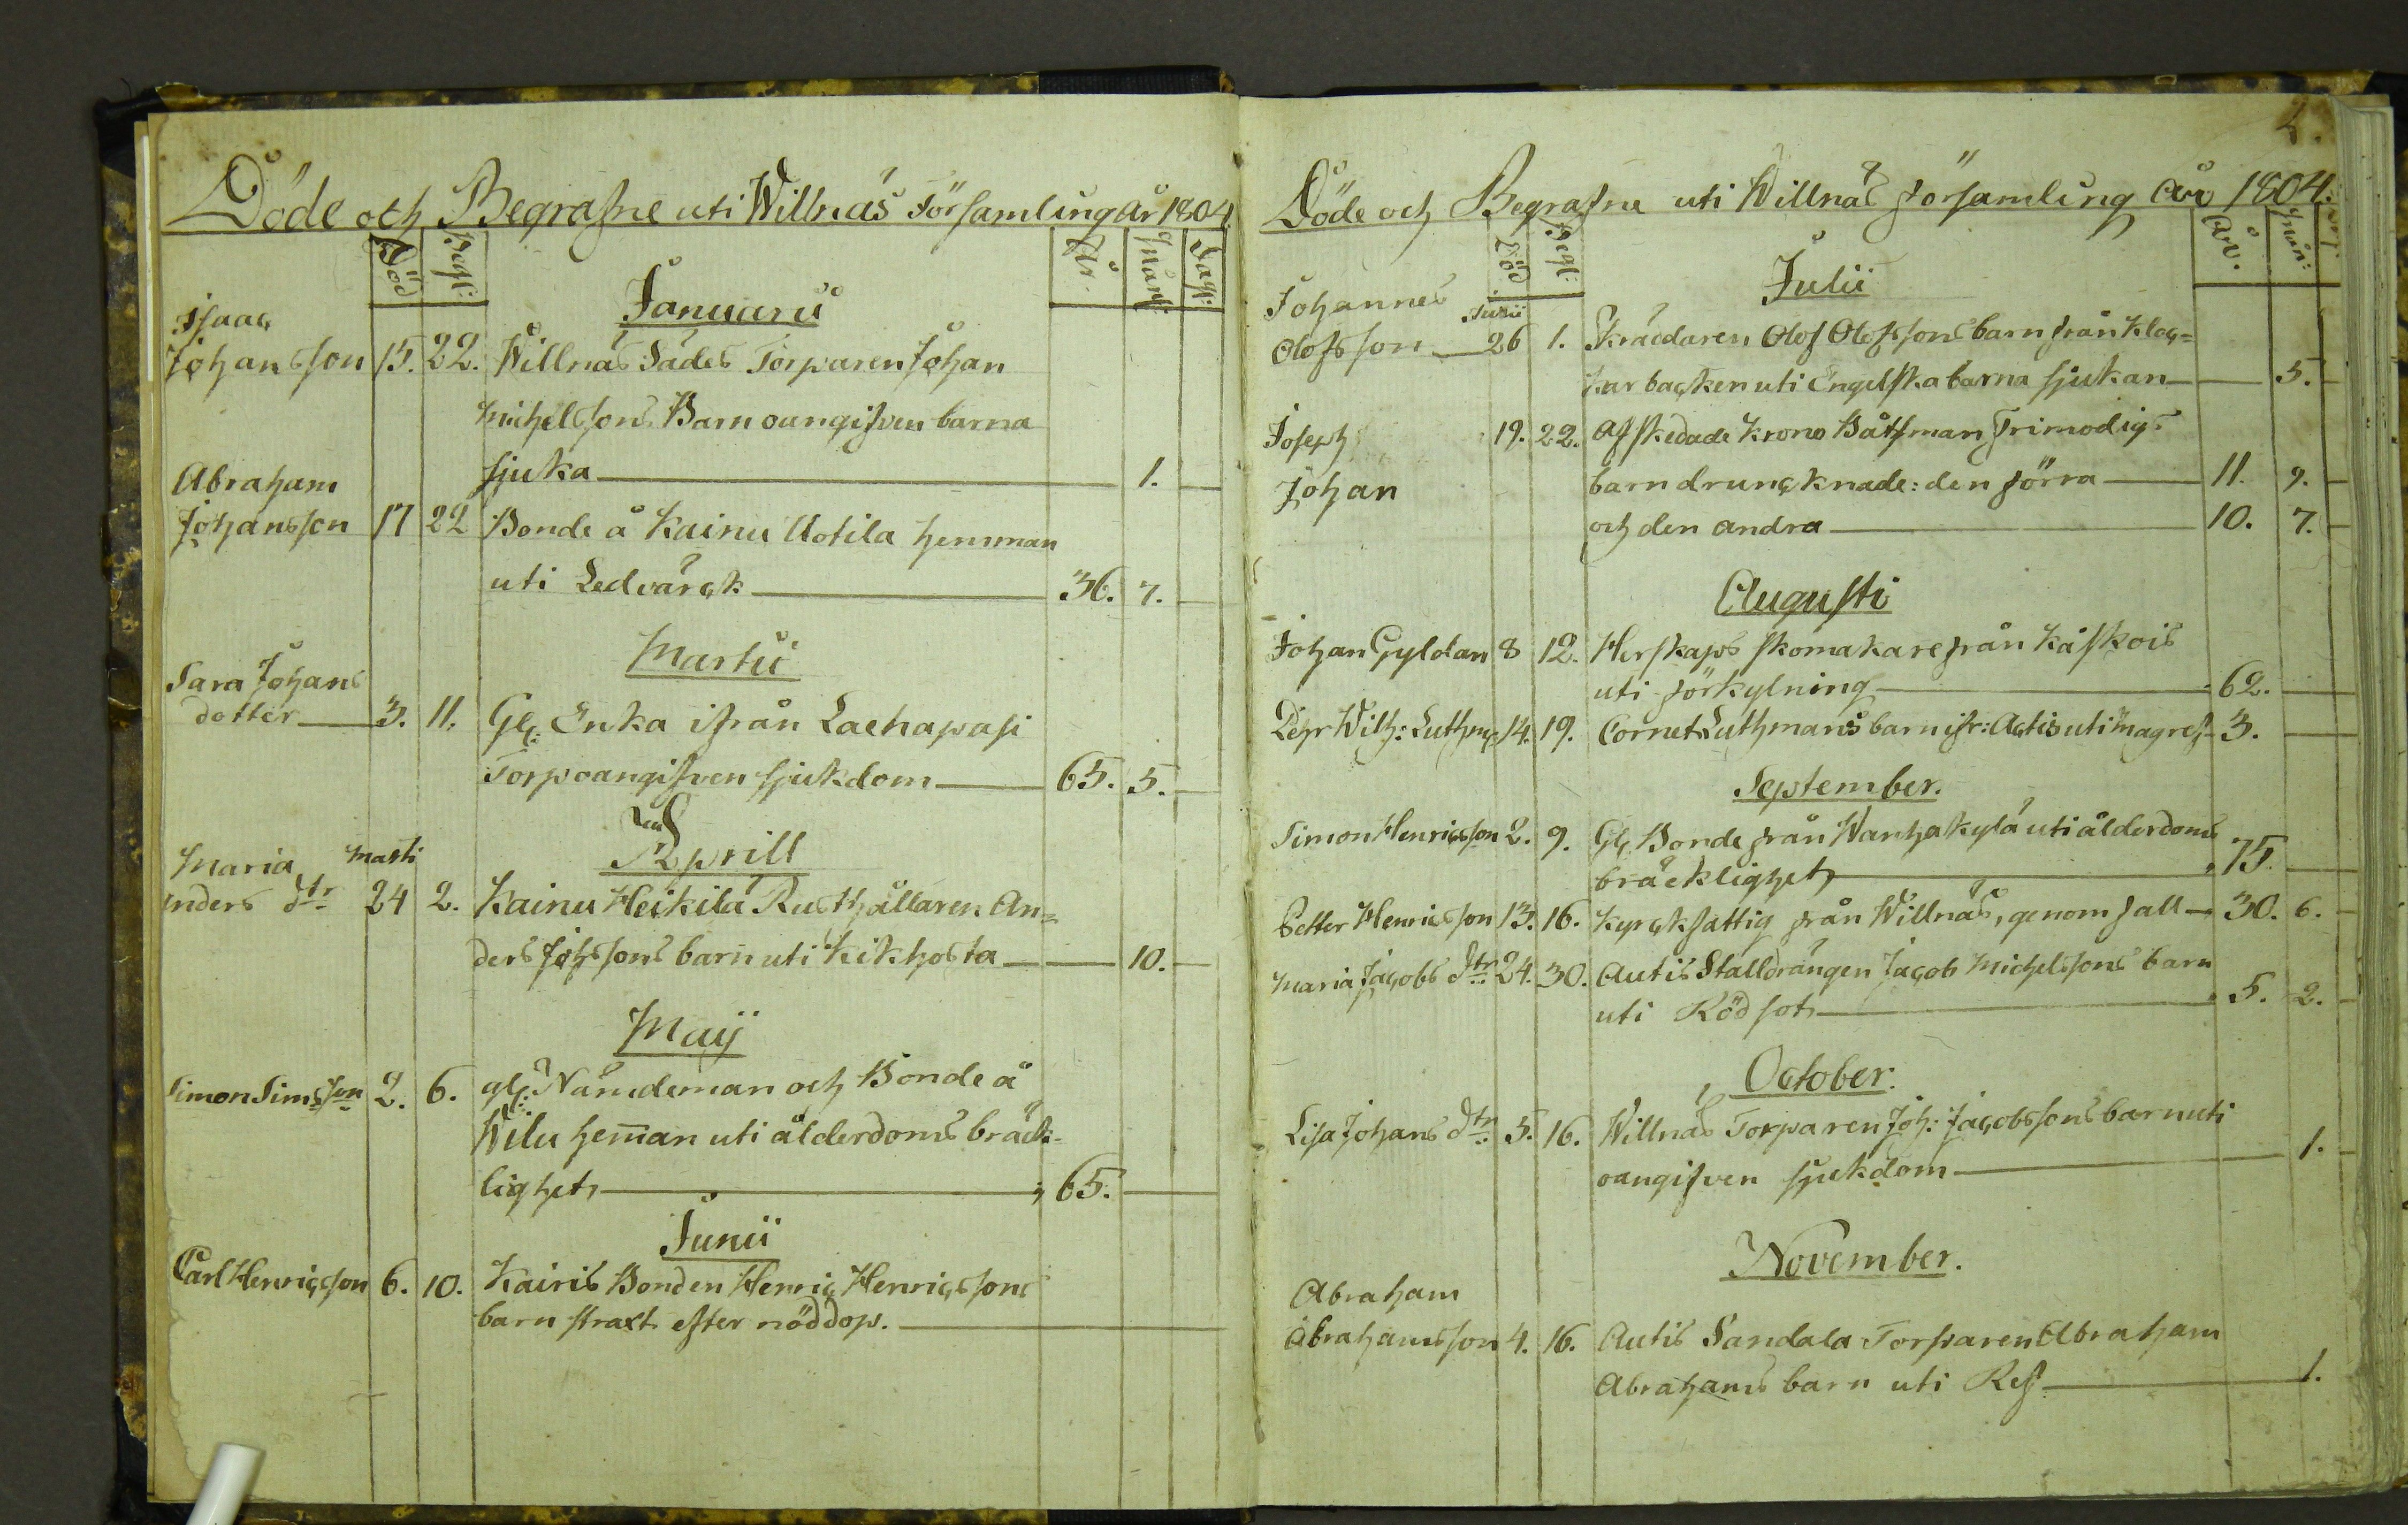 Döde och Begrafne uti Willnäs Församling År 1804.
Död
Begr:
År.
Mån:
Dag:
Januarii
Isaac
Johansson 15. 22. Willnäs Sädes Torparen Johan
Michelssons Barn oangifven barna
sjuka 1.
Abraham
Johansson 17 22 Bonde å Kainu Uotila hemman
uti Ledvärck 36. 7.
Martii
Sara Johans
dotter 3. 11. Gl: Enka ifrån Laehapasi
Torp oangifven sjukdom 65. 5.
Aprill
Maria Marti
Anders dtr 24 2. Kainu Heikilä Rusthållaren An=
ders Johssons barn uti Kikhosta 10.
Maij
Simon Simsson 2. 6. gl: Nämdeman och Bonde å
Wilu hemman uti ålderdoms bräck=
lighet 65.
Junii
Carl Henricsson 6. 10. Kairis Bonden Henric Henricssons
barn straxt efter nöddop.
2.
Döde och Begrafne uti Willnäs församling År 1804.
Död
Begr:
År.
Mån:
Julii
Johannes Junii
Olofsson 26 1. Skräddaren Olof Olofssons barn från Kloc=
kar backen uti Engelska barna sjukan 5.
Joseph 19. 22. Afskedade Krono Båtsman Frimodigs
Johan barn druncknade: den förra 11. 9.
och den andra 10. 7.
Augusti
Johan Gyldan 8 12. Herskaps skomakare från Kåskois
uti förkylning 62.
Pehr Wilh: Luthm: 14. 19. Cornet Luthmans barn ifr: Actis uti Magref 3.
September.
Simon Henricsson 2. 9. Gl. Bonde från Wanhakylä uti ålderdoms
bräcklighet 75.
Petter Henricsson 13. 16. Kyrckfattig från Willnäs, genom fall 30. 6.
Maria Jacobs dtr 24. 30. Autis Stalldrängen Jacob Michelssons barn
uti Rödsot 5. 2.
October.
Lisa Johans dtr 5. 16. Willnäs Torparen Joh: Jacobssons barn uti
oangifven sjukdom 1.
November.
Abraham
Abrahamsson 4. 16. Autis Sandala Torparen Abraham
Abrahams barn uti Ref 1.